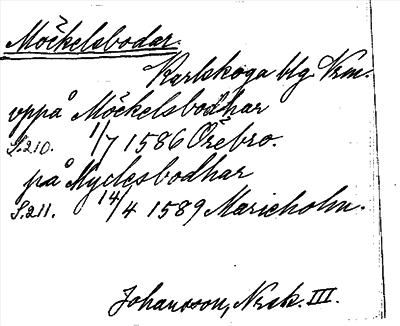 Möckelsbodar.
Karlskoga blg. Vrm.
uppå Möckelsbodhar
S.210. 1/7 1586 Örebro.
på Myclesbodhar
S.211. 14/4 1589 Marieholm.
Johansson, Nork. III.